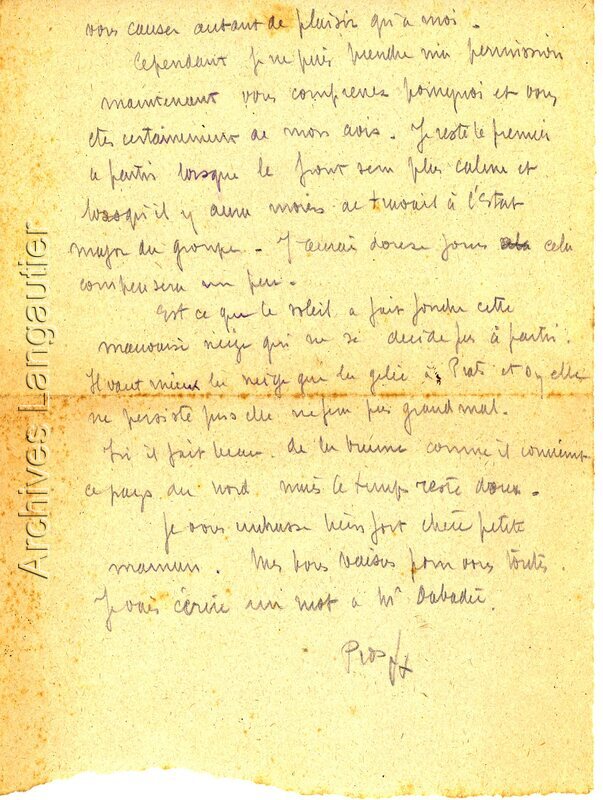 vous causer autant de plaisir qu'a moi.
Cependant je ne puis prendre ma permission
maintenant vous comprenez pourquoi et vous
etes certainement de mon avis. Je reste le premier
a partir lorsque le front sera plus calme et
lorsqu'il y aura moins de travail à l'Etat
major du groupe. J'aurai douze jours cela
compensera un peu.
Est ce que le soleil a fait fondre cette
mauvaise neige qui ne se decide pas à partir.
Il vaut mieux la neige que la gelée à Prats et elle
ne persiste pas elle ne fera pas grand mal.
Ici il fait beau. de la brume comme il convient
ce pays du nord mais le temps reste doux.
Je vous embrasse bien fort chère petite
maman. Mes bons baises pour vous toutes.
Je vais écrire un mot a Mr Dabadie.
Archives Langautier